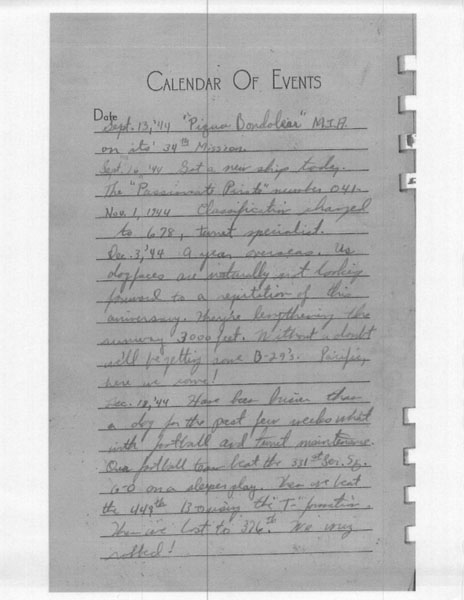 CALENDAR OF EVENTS
Date
Sept. 13, '44 "Piqua Bondolear" M.I.A.
on its' 34th Mission.
Sept. 26, '44 Got a new ship today.
The "Passionate Pirate" number 041.
Nov. 1, 1944 Classification changed
to 678, turret specialist.
Dec. 3, '44 A year overseas. Us
dogfaces are naturally not looking
forward to a repitition of this
aniversary. They're lengthening the
runway 3000 feet. Without a doubt
we'll be getting some B-29's. Pacific,
here we come!
Dec. 18, '44 Have been busier than
a dog for the past few weeks what
with football and turret maintenance.
Our football team beat the 331st Ser. Sq.
6-0 on a sleeper play. Then we beat
the 449th 13- using the "T" formation.
Then we lost to 376th. We wuz
robbed!